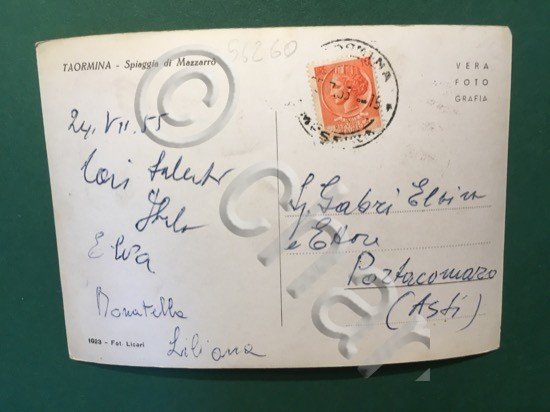 56260
TAORMINA - Spiaggia di Mazzarò
VERA
FOTO
GRAFIA
TAORMINA
MESSINA
24.VII.55
Cari saluti
Elva
Donatella
Liliana
Gabri Elvira
e Ettore
Portacomaro
(Asti)
1093 - Fot. Licari